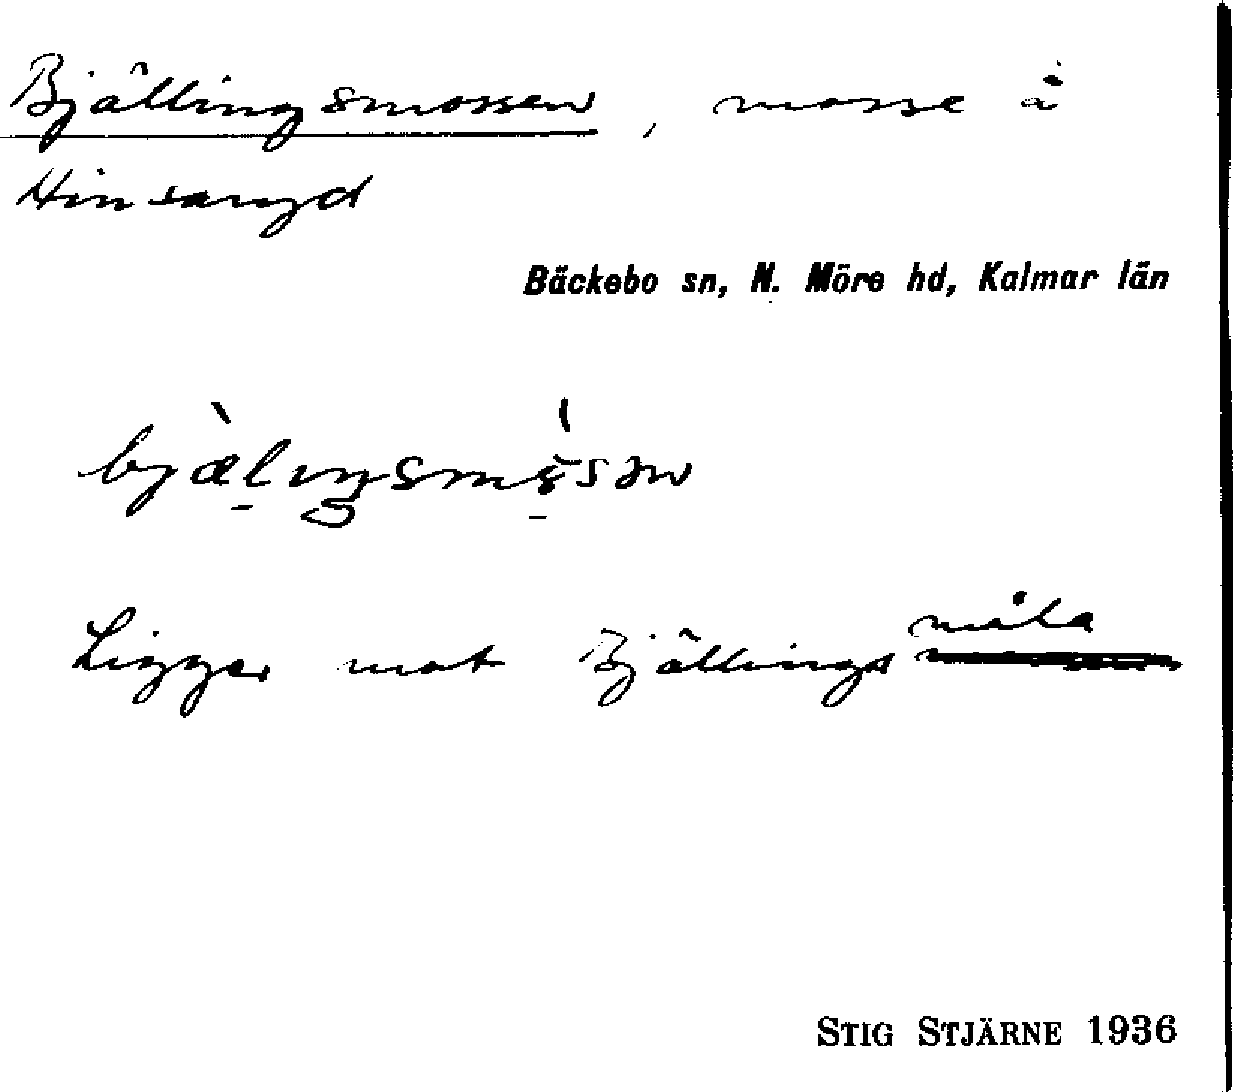 Bjällingsmossen, mosse å
Hinsaryd
Bäckebo sn, N. Möre hd, Kalmar län
Ligger mot Bjällings måla
STIG STJÄRNE 1936